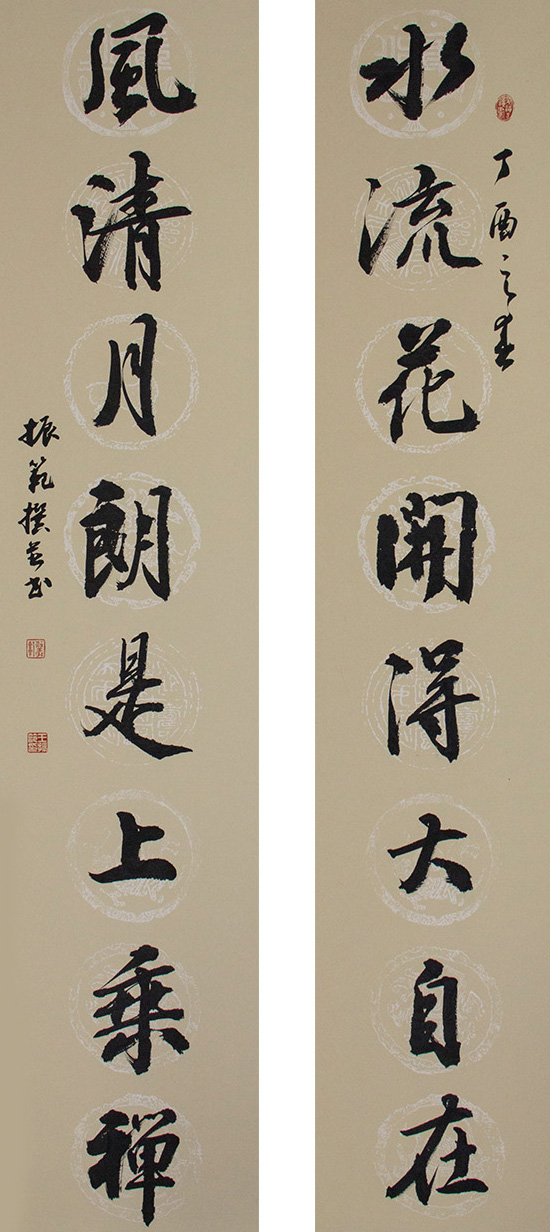 丁酉之春
水流花開得大自在
風清月朗是上乘禪
振範撰並書